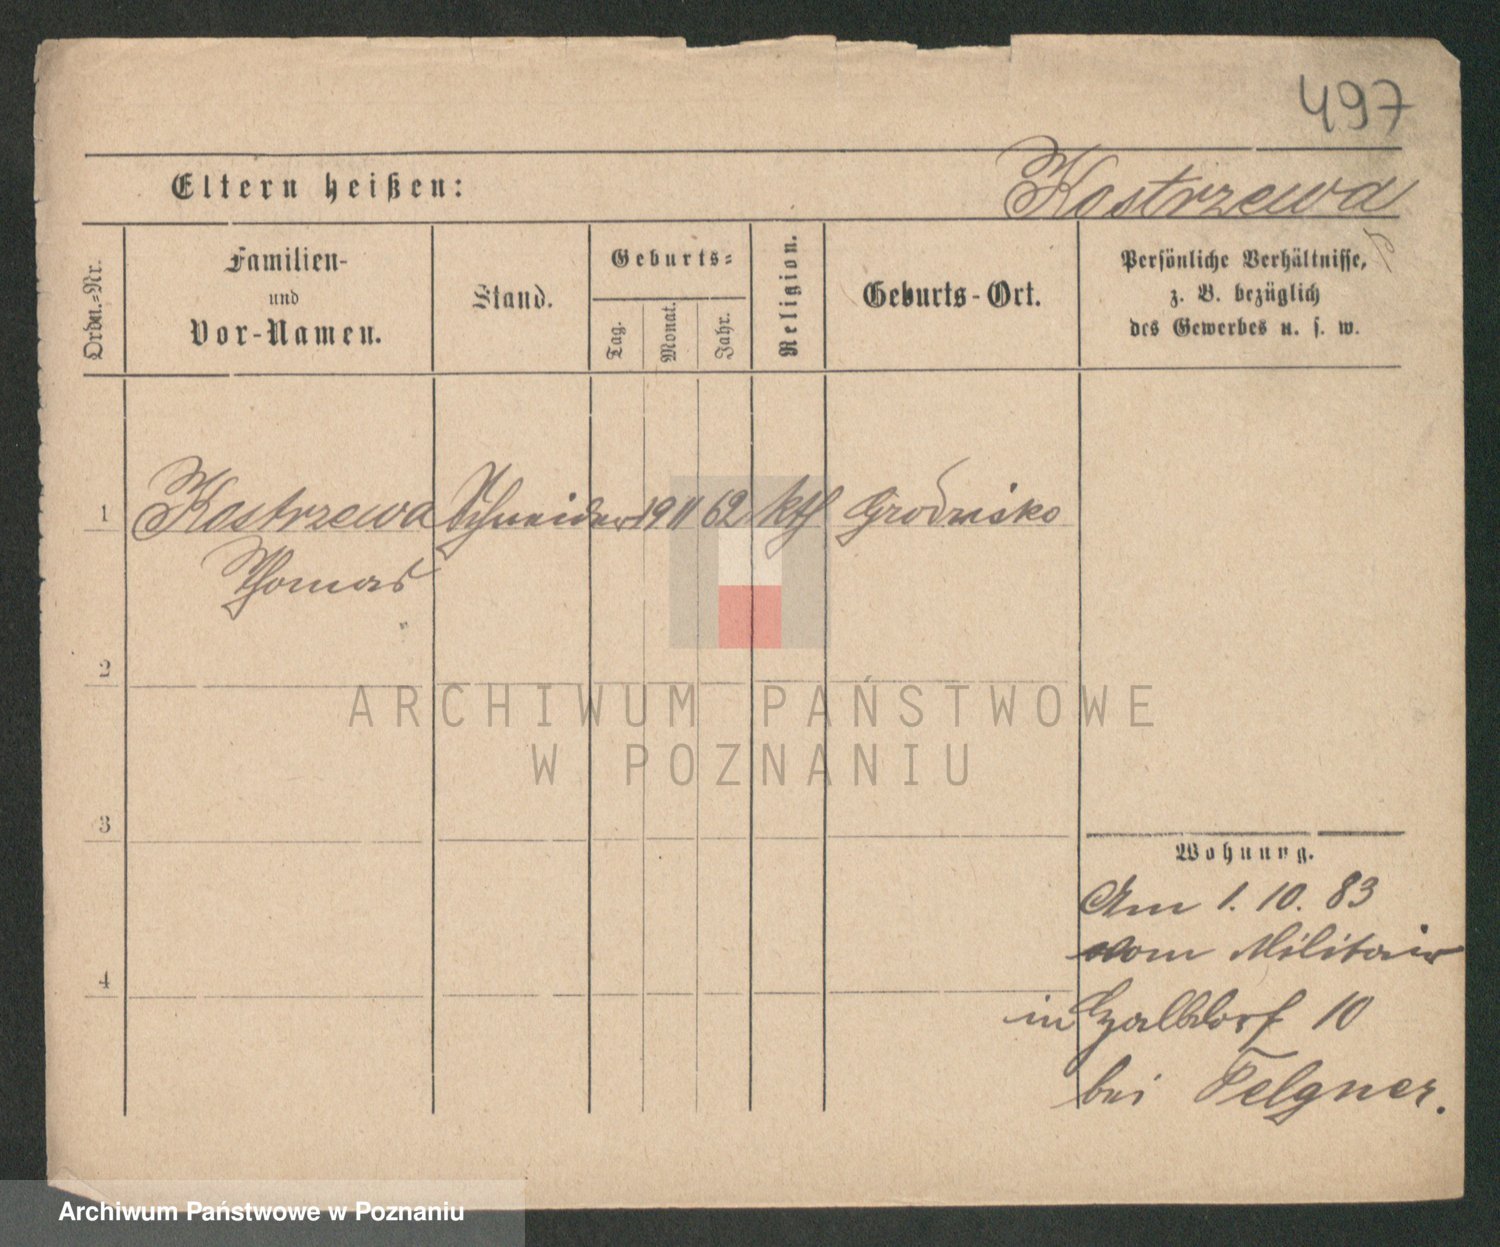 497
Eltern heißen:
Kostrzewa
Ordn.-Nr.
Familien-
und
Vor-Namen.
Stand.
Geburts-
Tag.
Monat.
Jahr.
Religion.
Geburts-Ort.
Persönliche Verhältnisse,
z. B. bezüglich
des Gewerbes u. s. w.
1 Kostrzewa Schneider 19 11 62 kth Grodzisko
Thomas
2
3
4
Wohnung.
Am 1. 10. 83
vom Militair
in 10
bei Felgner.
ARCHIWUM PAŃSTWOWE
W POZNANIU
Archiwum Państwowe w Poznaniu